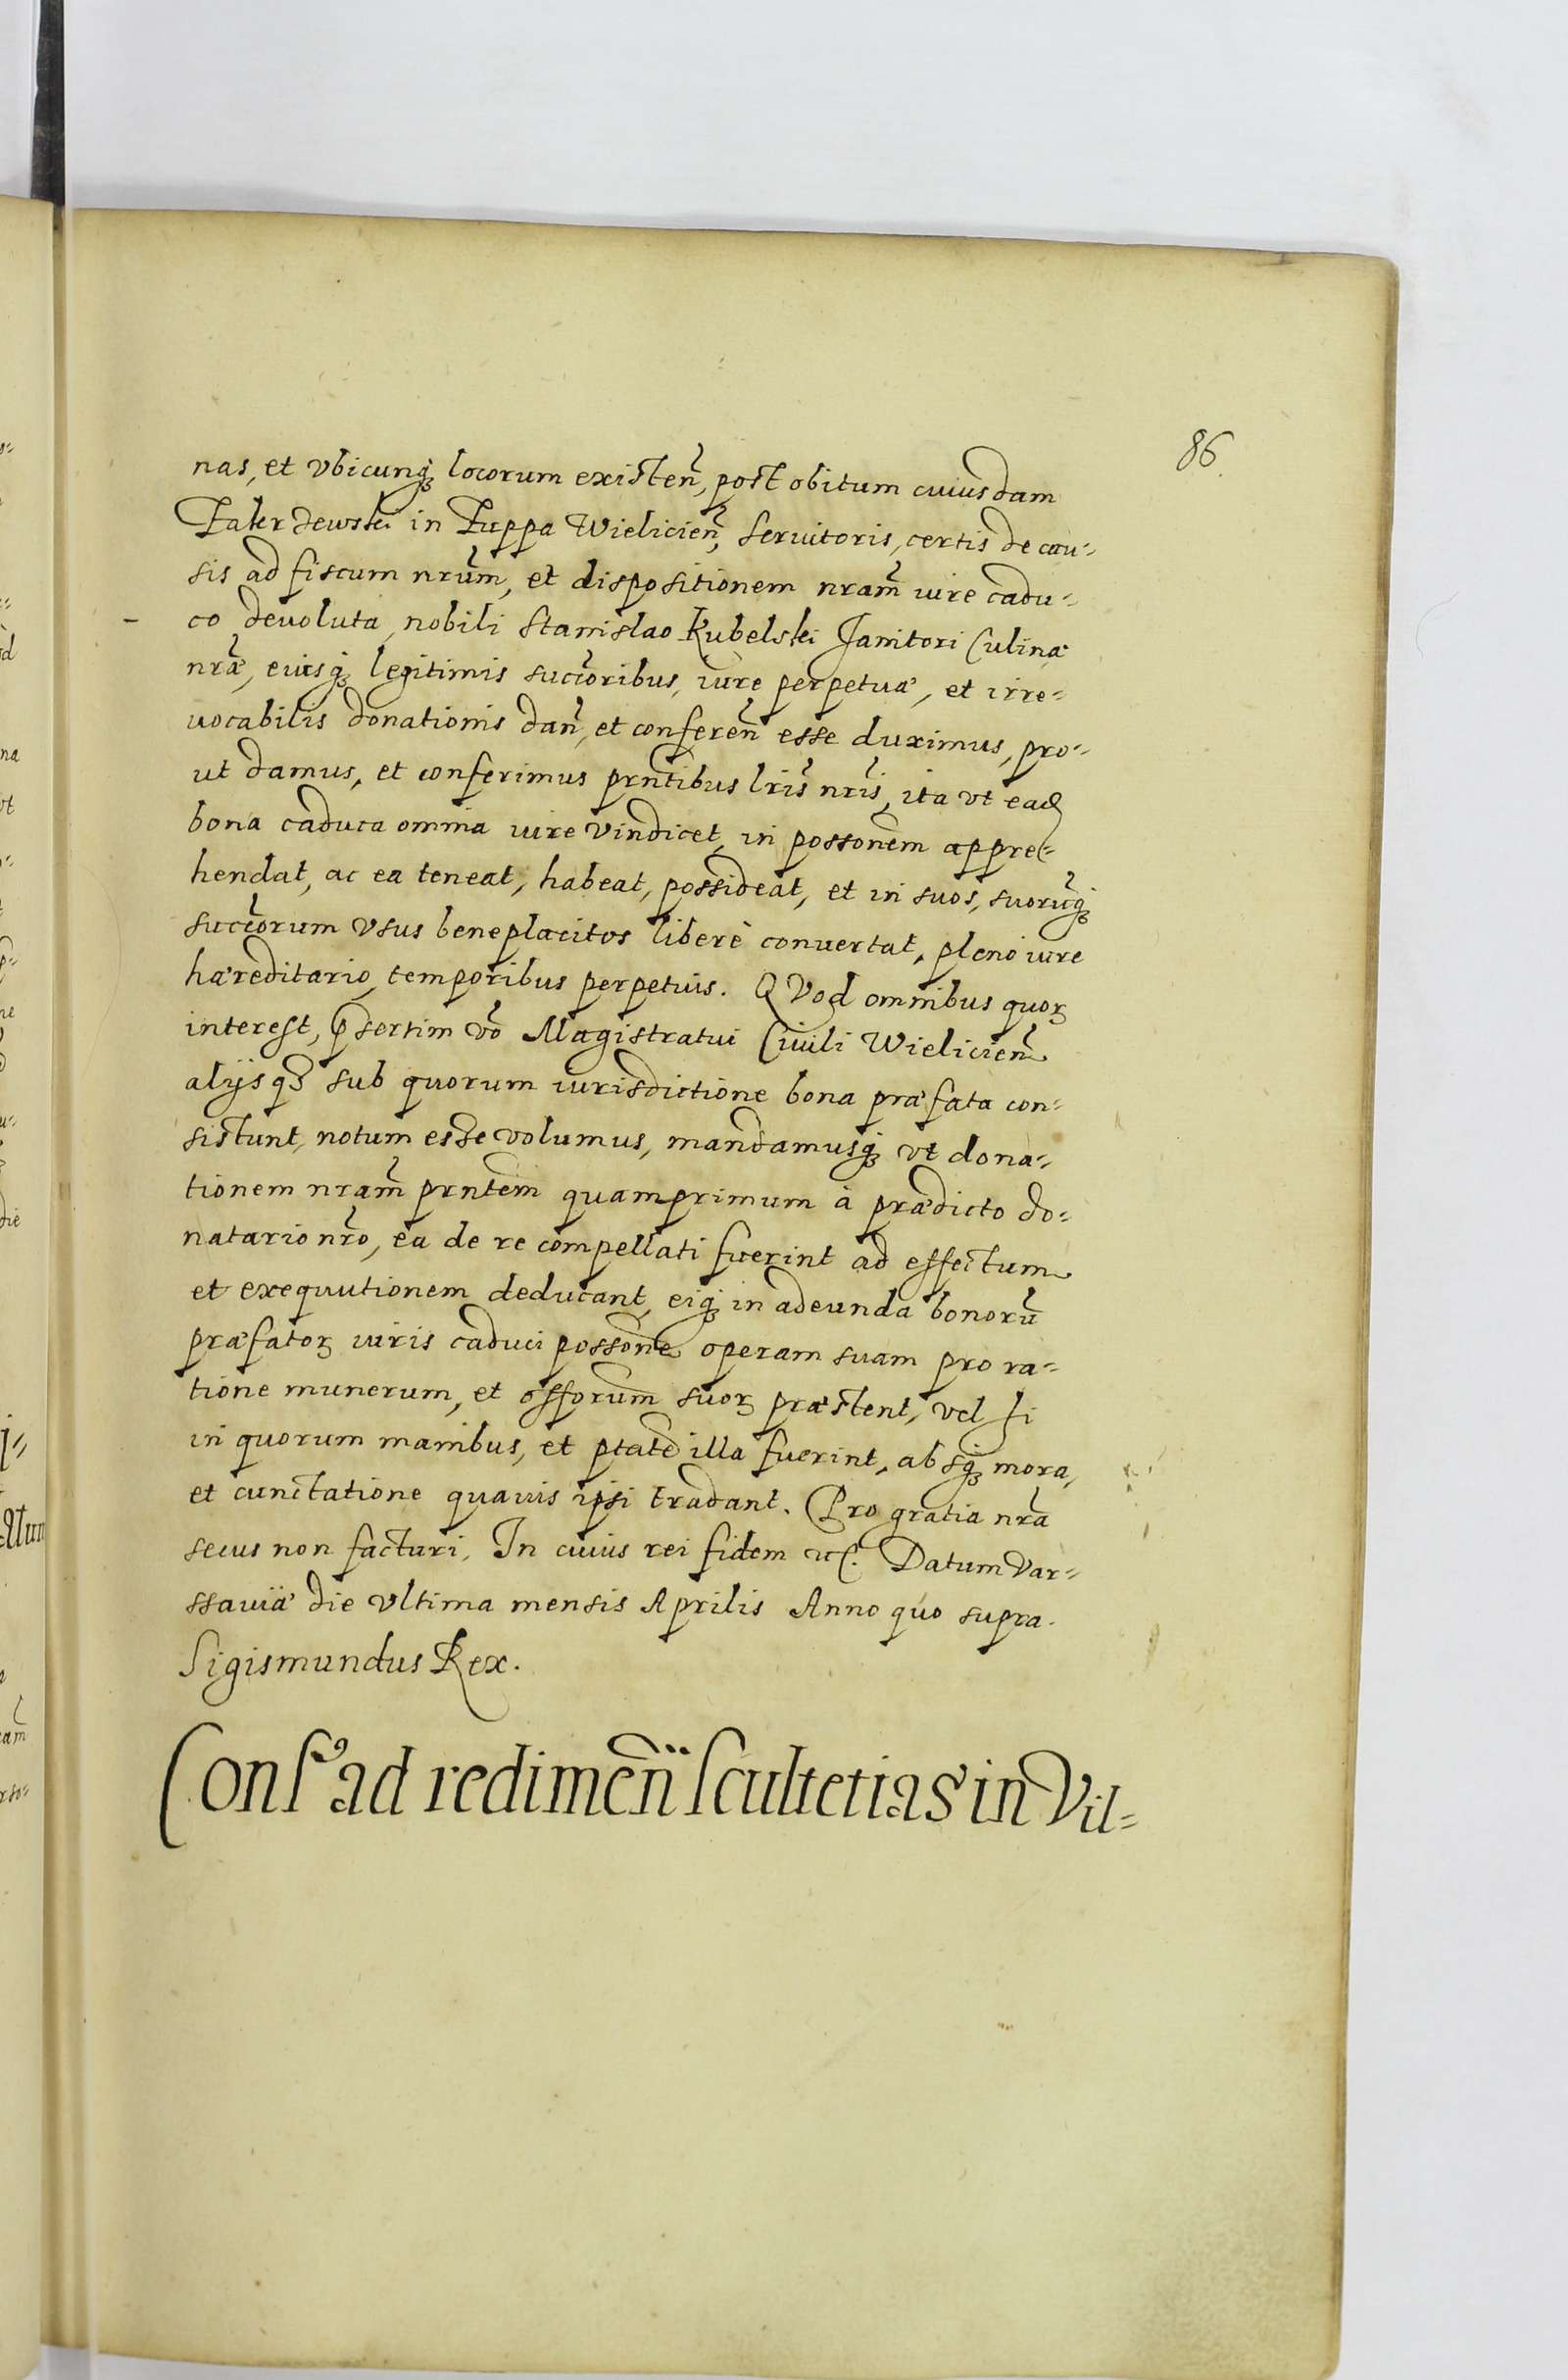 86.
nas, et vbicunq; locorum existen̄, post obitum cuiusdam
Zakrzewski in Zuppa Wielicien̄, Seruitoris, certis de cau=
sis ad fiscum nrūm, et dispositionem nram̄ iure cadu=
co deuoluta, nobili Stanislao Kubelski Janitori Culinæ
nrǣ, eiusq; legitimis succōribus, iure perpetuæ, et irre=
uocabilis donationis dan̄, et conferen̄ esse duximus, pro=
ut damus, et conferimus prn̄tibus lris̄ nris̄, ita vt ead
bona caduca omnia iure vindicet, in possonēm appre=
hendat, ac ea teneat, habeat, possideat, et in suos, suorūq;
succōrum vsus beneplacitos liberè conuertat, pleno iure
hæreditario, temporibus perpetuis. QVod omnibus quoꝝ
interest, p̄sertim vō Magistratui Ciuili Wielicien̄
alijsq; sub quorum iurisdictione bona præfata con=
sistunt, notum esse volumus, mandamusq; vt dona=
tionem nram̄ prn̄tem quamprimum à prædicto do=
natario nrō, ea de re compellati fuerint ad effectum
et exequutionem deducant, eiq; in adeunda bonorū
præfatoꝝ iuris caduci possonē operam suam pro ra=
tione munerum, et offōrum suoꝝ præstent, vel si
in quorum manibus, et ptatē illa fuerint, absq; mora,
et cunctatione quauis ipsi tradant. Pro gratia nrā
secus non facturi. In cuius rei fidem etc. Datum Var=
ssauiæ die vltima mensis Aprilis Anno quo supra.
Sigismundus Rex.
Cons' ad redimen̄ scultetias in Vil=